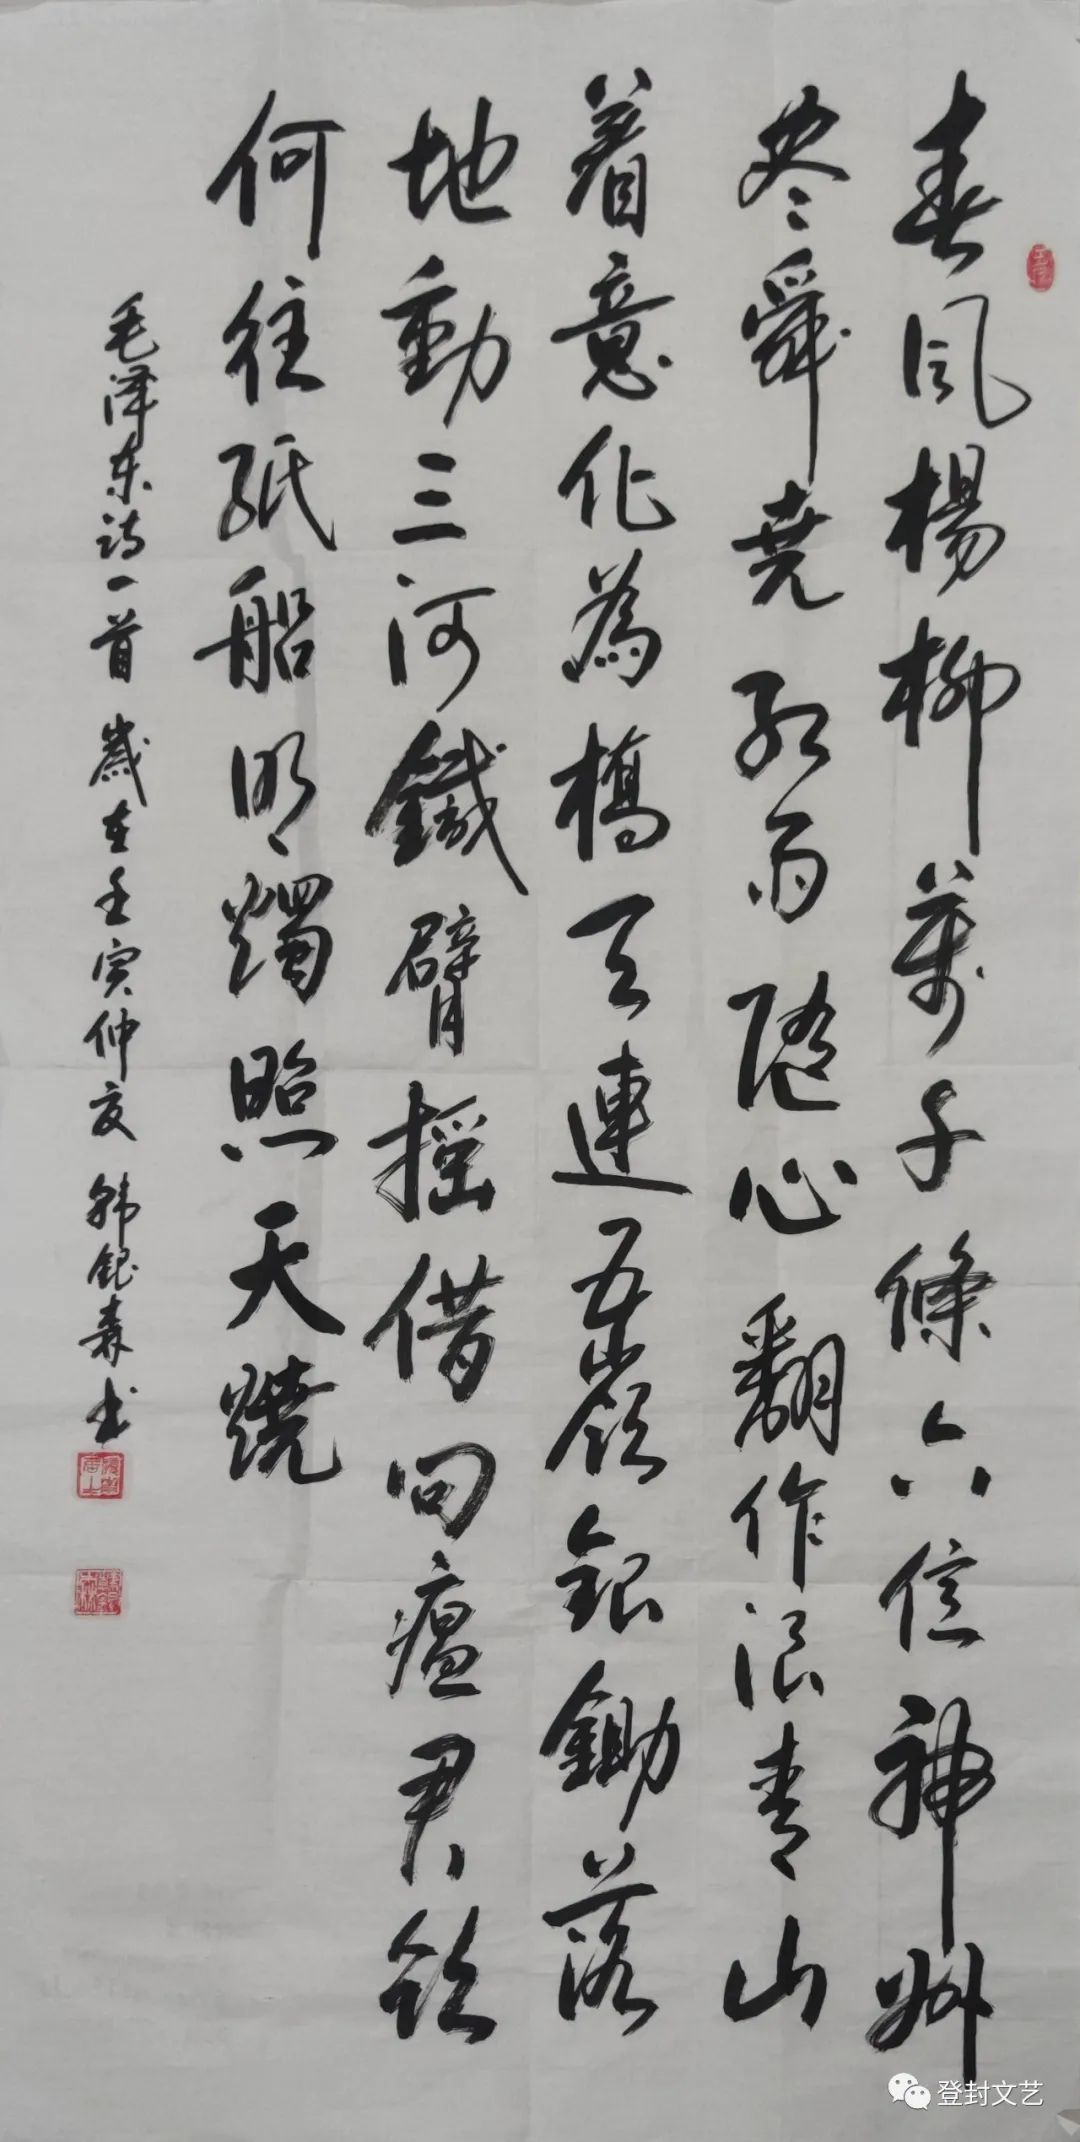 春风楊柳萬千條六億神州
尽舜尭紅雨隨心翻作浪青山
着意化為橋天連五嶺銀鋤落
地動三河鐵臂摇借问瘟君欲
何往紙船明燭照天燒
毛泽东诗一首 歲在壬寅仲夏 韩银森书
登封文艺